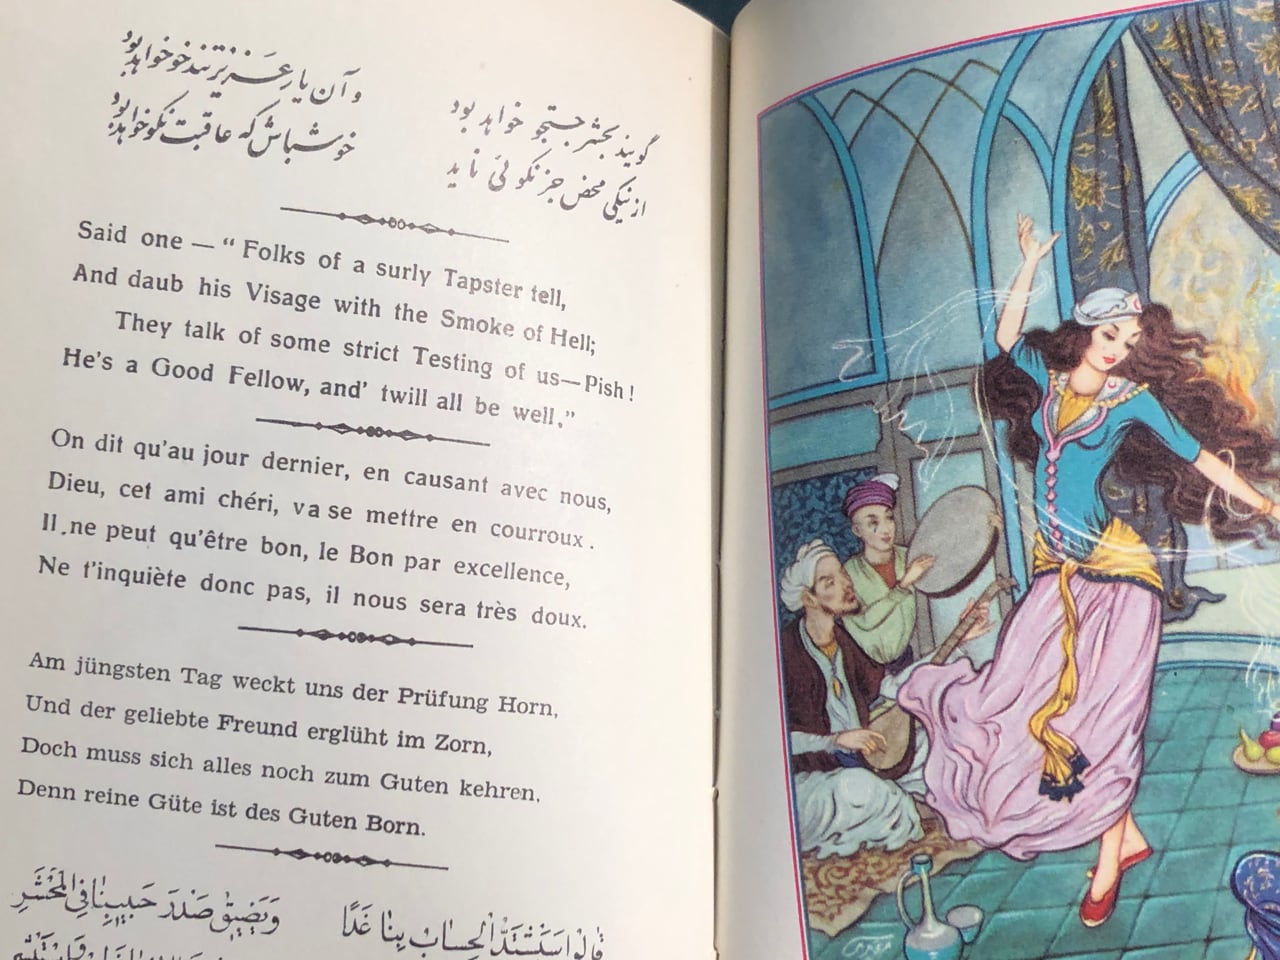 گویند بحشر جستجو خواهد بود
وآن یار عزیز تندخو خواهد بود
از نیکی محض جز نکوئی ناید
خوشباش که عاقبت نکو خواهد بود
Said one — “ Folks of a surly Tapster tell,
And daub his Visage with the Smoke of Hell;
They talk of some strict Testing of us—Pish!
He's a Good Fellow, and' twill all be well.”
On dit qu'au jour dernier, en causant avec nous,
Dieu, cet ami chéri, va se mettre en courroux.
Il ne peut qu'être bon, le Bon par excellence,
Ne t'inquiète donc pas, il nous sera très doux.
Am jüngsten Tag weckt uns der Prüfung Horn,
Und der geliebte Freund erglüht im Zorn,
Doch muss sich alles noch zum Guten kehren.
Denn reine Güte ist des Guten Born.
قالوا سَتَشْتَدُّ الحِسَابُ بِنَا غَدًا
وَيَضِيقُ صَدْرَ حَبِيبِنَا فِي المَحْشَرِ